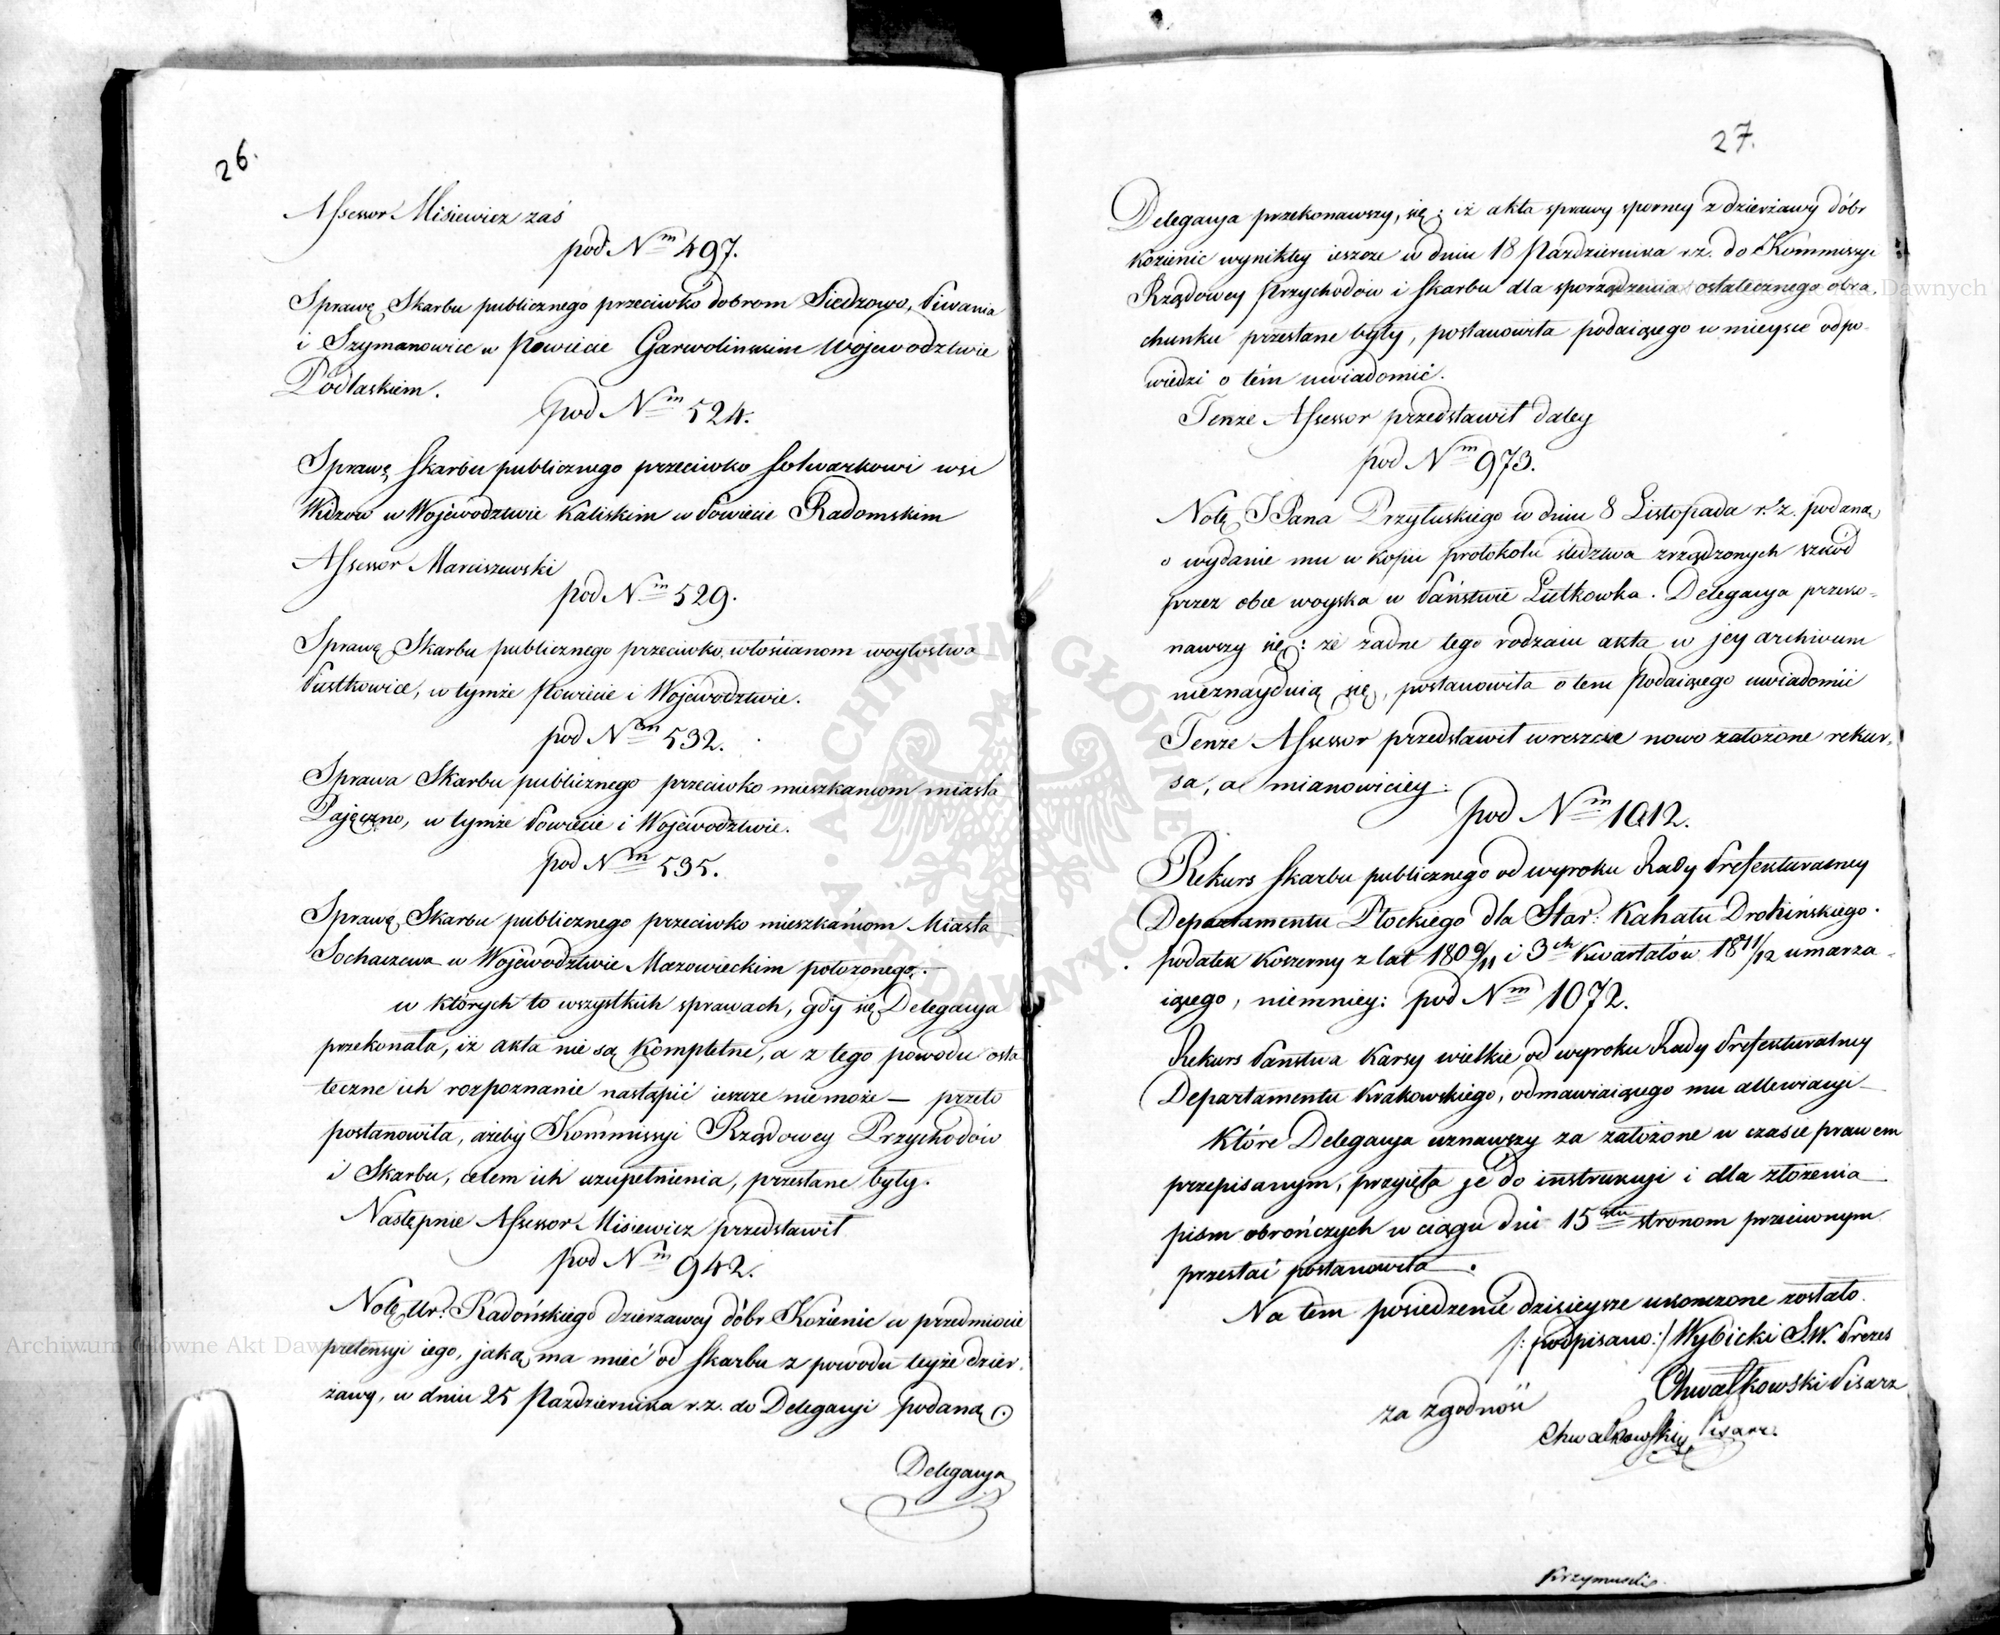 26.
Assessor Misiewicz zaś
pod Nm 497.
Sprawę Skarbu publicznego przeciwko dobrom Siedzowo, Piwania
i Szymanowice w Powiecie Garwolinskim Wojewodztwie
Podlaskiem.
pod Nm 524.
Sprawę Skarbu publicznego przeciwko folwarkowi wsi
Widzow w Wojewodztwie Kaliskim w Powiecie Radomskim
Assessor Marciszewski
pod Nm 529.
Sprawę Skarbu publicznego przeciwko włościanom woytostwa
Pustkowice, w tymże Powiecie i Wojewodztwie.
pod Nm 532.
Sprawa Skarbu publicznego przeciwko mieszkaniom miasta
Pajęczno, w tymże Powiecie i Wojewodztwie.
pod Nm 535.
Sprawę Skarbu publicznego przeciwko mieszkańiom Miasta
Sochaczewa w Wojewodztwie Mazowieckim położonego.
w których to wszystkich sprawach, gdy się Delegacya
przekonała, iż akta nie są kompletne, a z tego powodu osta
teczne ich rozpoznanie nastąpić ieszcze nie może — przeto
postanowiła, ażeby Kommissyi Rządowey Przychodów
i Skarbu, celem ich uzupełnienia, przesłane były.
Następnie Assessor Misiewicz przedstawił
pod Nm 942.
Notę Ur. Radońskiego dzierzawcy dóbr Kozienic w przedmiocie
pretensyi iego, jaką ma mieć od Skarbu z powodu teyże dzier.
żawy, w dniu 25 Pazdziernika r.z. do Delegacyi podaną.
Delegacya
27.
Delegacya przekonawszy się; iż akta sprawy sporney z dzierżawy dóbr
Kozienic wynikłey ieszcze w dniu 18 Października r.z. do Kommissyi
Rządowey Przychodów i Skarbu dla sporządzenia ostatecznego obra.
chunku przesłane były, postanowiła podaiącego w mieysce odpo.
wiedzi o tém uwiadomić.
Tenże Assessor przedstawił daley
pod Nm 973.
Notę JPana Przyłuskiego w dniu 8 Listopada r.z. podaną
o wydanie mu w kopii protokołu śledztwa zrządzonych szkód
przez obce woyska w Państwie Lutkowka. Delegacya przeko-
nawszy się: że żadne tego rodzaiu akta w jey archiwum
nieznayduią się, postanowiła o tem Podaiącego uwiadomić
Tenże Assessor przedstawił wreszcie nowo założone rekur.
sa, a mianowiciey:
pod Nm 1012.
Rekurs Skarbu publicznego od wyroku Rady Prefekturalney
Departamentu Płockiego dla Star: Kahału Drobińskiego
podatek koszerny z lat 1809/11 i 3ch Kwartałów 1811/12 umarza-
iącego, niemniey: pod Nm 1072.
Rekurs Państwa Karsy wielkie od wyroku Rady Prefekturalney
Departamentu Krakowskiego, odmawiaiącego mu allewiacyi
Które Delegacya uznawszy za założone w czasie prawem
przepisanym, przyięła je do instrukcyi i dla złożenia
pism obrończych w ciągu dni 15stu stronom przeciwnym
przesłać postanowiła.
Na tem posiedzenie dzisieysze ukonczone zostało.
/: podpisano:/ Wybicki S.W. Prezes
Chwałkowski Pisarz
za zgodność
Chwałkowski Pisarz.
Archiwum Główne Akt Dawnych